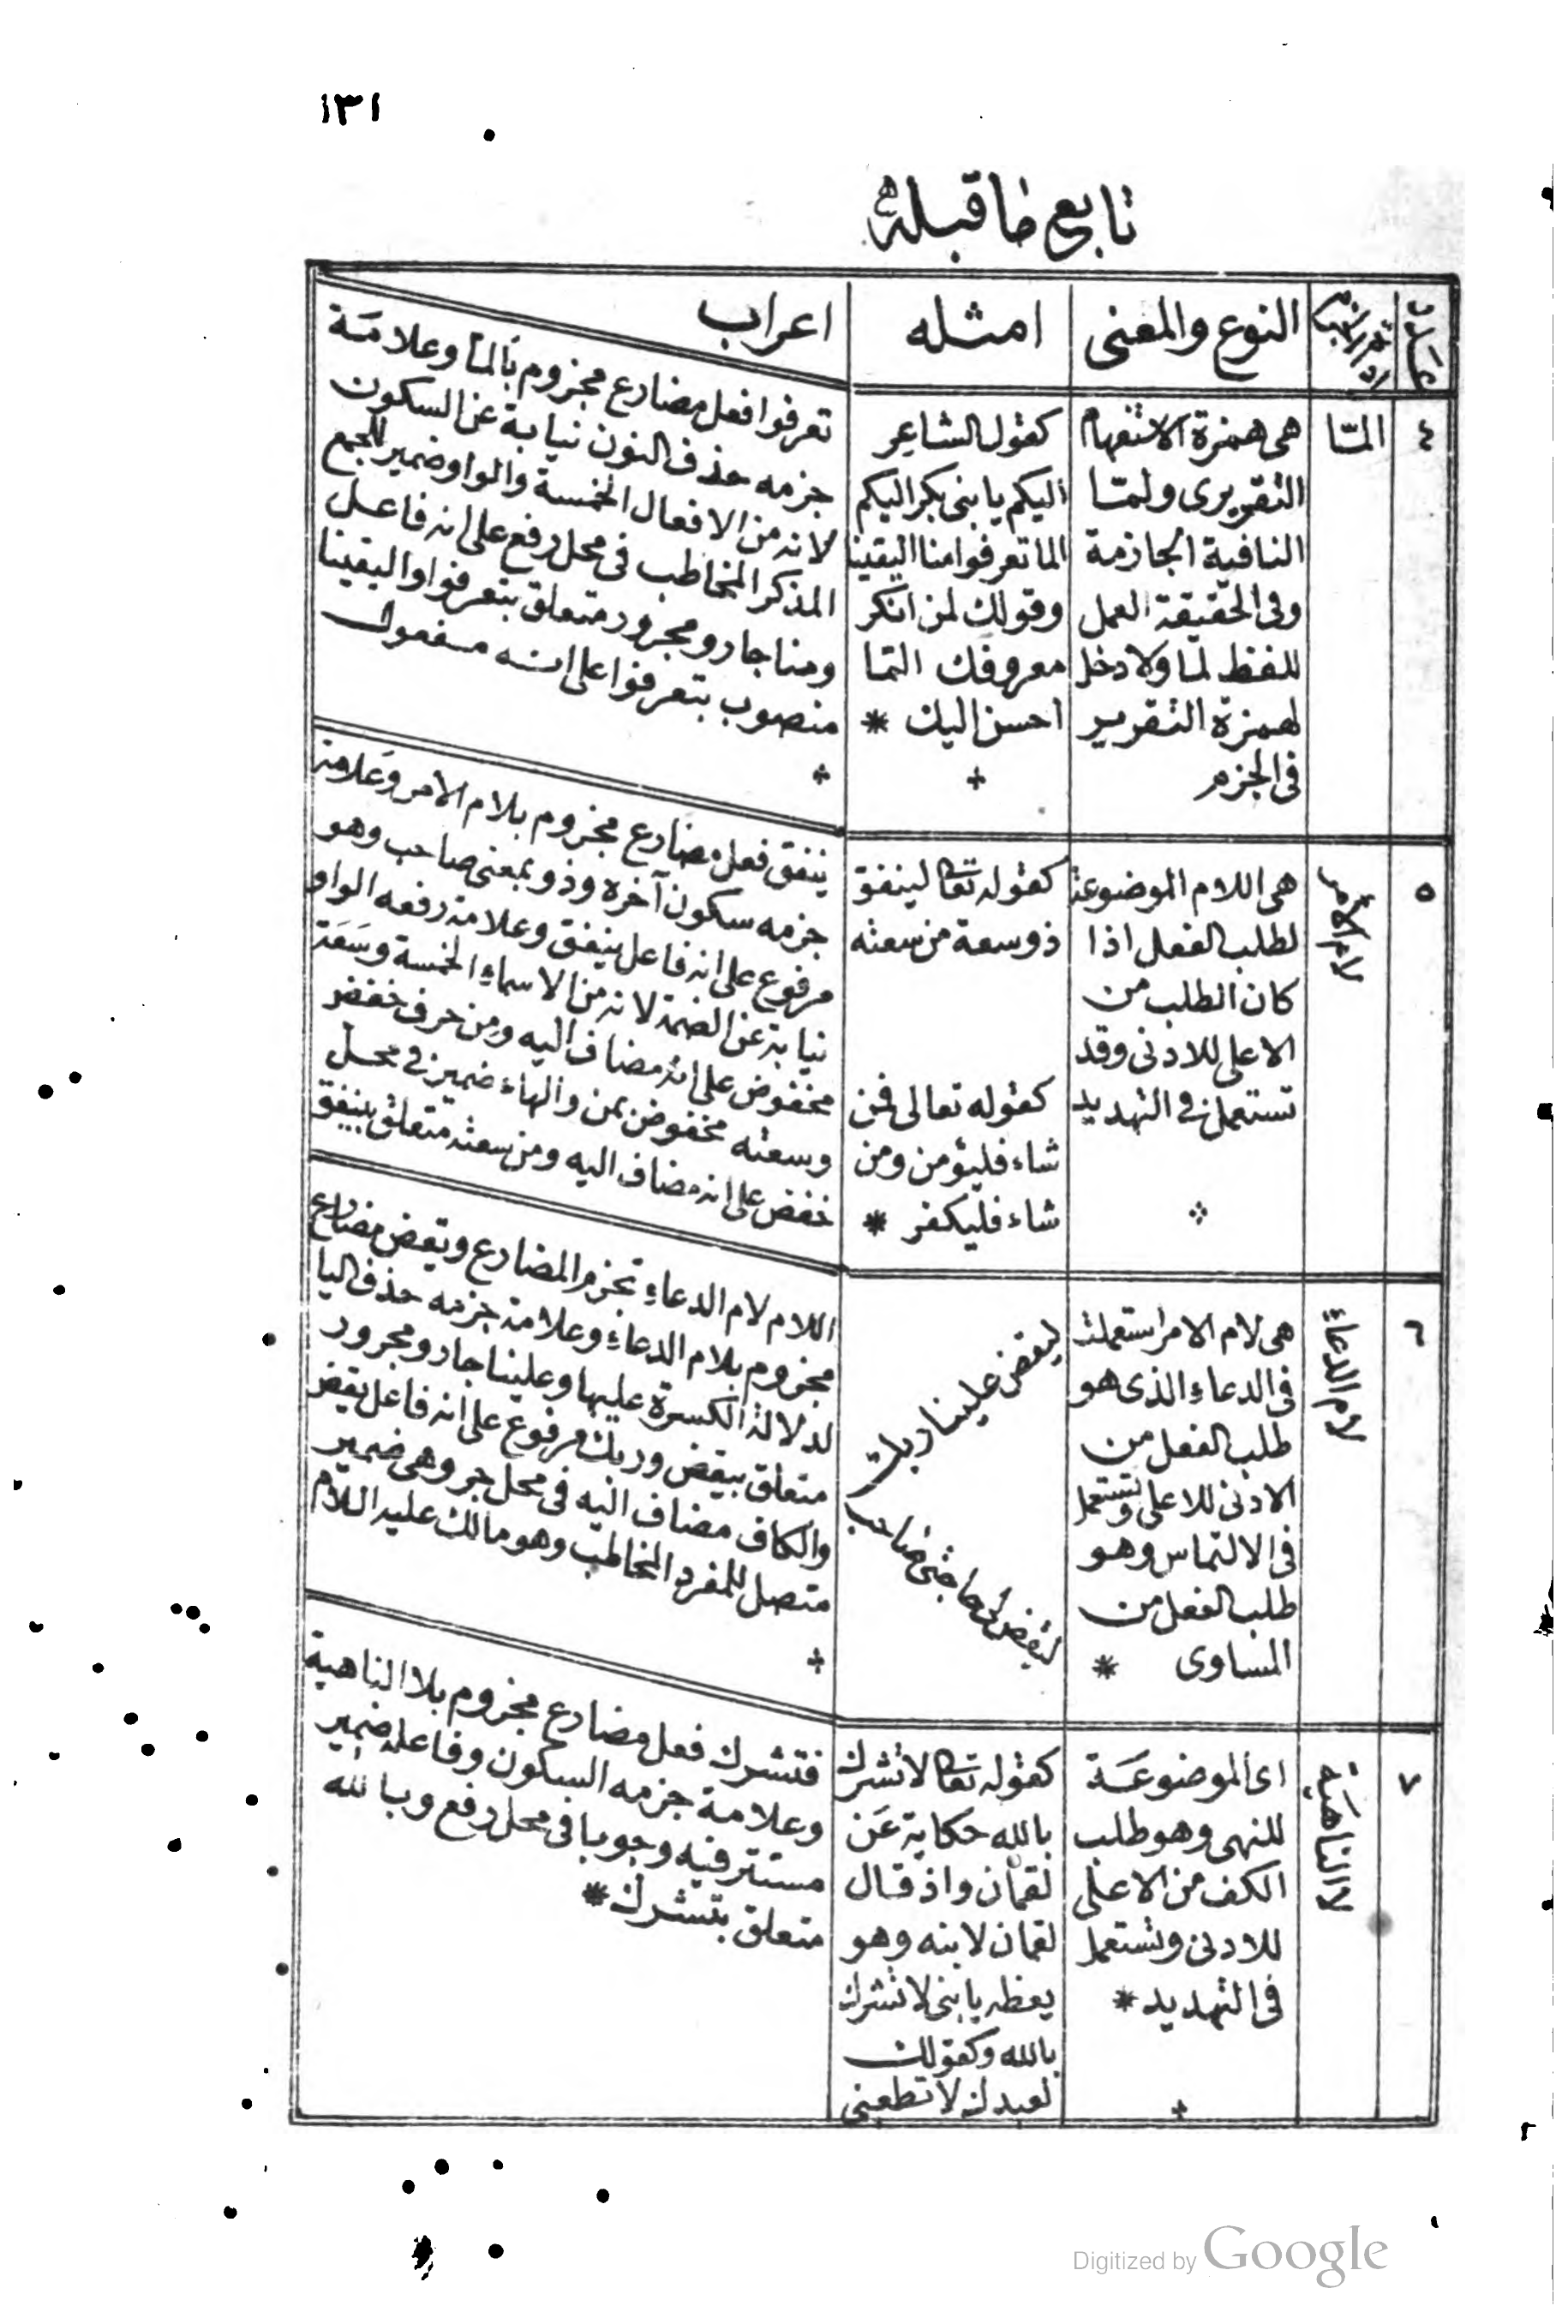 ١٣١
تابع ما قبله
عدد
النوع والمعنى
امثله
اعراب
٤
المّا
هى همزة الاستفهام
التقريرى ولمّا
النافية الجازمة
وفى الحقيقة العمل
للفظ لما ولا دخل
لهمزة التقرير
فى الجزم
كقول الشاعر
اليكم يا بنى بكر اليكم
الما تعرفوا منا اليقينا
وقولك لمن انكر
معروفك المّا
احسن اليك *
تعرفوا فعل مضارع مجزوم بألمّا وعلامة
جزمه حذف النون نيابة عن السكون
لانه من الافعال الخمسة والواو ضمير لجمع
المذكر المخاطب فى محل رفع على انه فاعل
ومنا جار ومجرور متعلق بتعرفوا واليقينا
منصوب بتعرفوا على انه مفعول
٥
لام الأمر
هى اللام الموضوعة
لطلب الفعل اذا
كان الطلب من
الاعلى للادنى وقد
تستعمل فى التهديد
كقوله تعا لينفق
ذو سعة من سعته
كقوله تعالى فمن
شاء فليؤمن ومن
شاء فليكفر *
ينفق فعل مضارع مجزوم بلام الامر وعلامة
جزمه سكون آخره وذو بمعنى صاحب وهو
مرفوع على انه فاعل ينفق وعلامة رفعه الواو
نيابة عن الضمة لانه من الاسماء الخمسة وسَعَة
مخفوض على انه مضاف اليه ومن حرف خفض
وسعته مخفوض بمن والهاء ضمير فى محل
خفض على انه مضاف اليه ومن سعته متعلق بينفق
٦
لام الدعاء
هى لام الامر استعملت
فى الدعاء الذى هو
طلب الفعل من
الادنى للاعلى وتستعمل
فى الالتماس وهو
طلب الفعل من
المساوى *
ليقض علينا ربك
لتقض لى حاجتى يا صاحب
اللام لام الدعاء تجزم المضارع ويقض مضارع
مجزوم بلام الدعاء وعلامة جزمه حذف اليا
لدلالة الكسرة عليها وعلينا جار ومجرور
متعلق بيقض وربك مرفوع على انه فاعل يقض
والكاف مضاف اليه فى محل جر وهى ضمير
متصل للمفرد المخاطب وهو مالك عليه السلام
٧
لا الناهية
اى الموضوعة
للنهى وهو طلب
الكف من الاعلى
للادنى وتستعمل
فى التهديد *
كقوله تعا لا تشرك
بالله حكاية عن
لقمان واذ قال
لقمان لابنه وهو
يعظه يا بنى لا تشرك
بالله وكقولك
لعبدك لا تطعنى
فتشرك فعل مضارع مجزوم بلا الناهية
وعلامة جزمه السكون وفاعله ضمير
مستتر فيه وجوبا فى محل رفع وبالله
متعلق بتشرك *
Digitized by Google